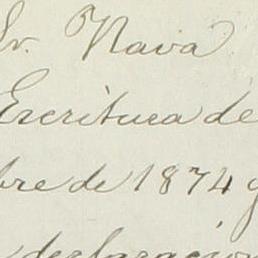 Sr. Nava
Escritura de
bre de 1874 y
declaracion